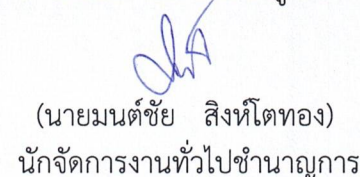 (นายมนต์ชัย สิงห์โตทอง)
นักจัดการงานทั่วไปชำนาญการ